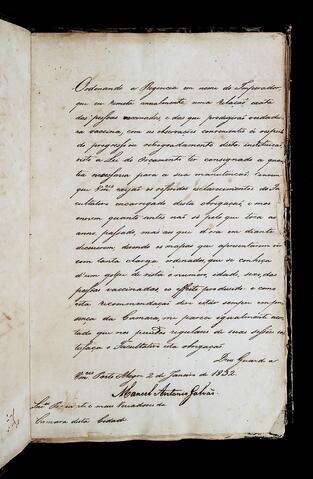 Ordenando a Regencia em nome do Imperador,
que eu remeta annualmente uma relação exata
das pessoas vaccinadas, e das que produzirão verdadei-
ra vaccina, com as observações convenientes a respeito
do progresso ou retrogradamento desta instituição,
visto a Lei do Orçamento ter consignado a quan-
tia necessaria para a sua manutenção:
que Vm.ces exijão os referidos esclarecimentos do Fa-
cultativo encarregado desta obrigação, e mos
enviem quanto antes não só pelo que toca ao
anno passado, mas ao que d'ora em diante
decorrer, devendo os mapas que apresentarem vir
com tanta clareza ordenados, que se conheça
d'um golpe de vista o numero, idade, sexo, das
pessoas vaccinadas, e o effeito produzido: e como
esta recommendação deve estar sempre em pre-
sença da Camara, me parece igualmente acer-
tado que nos periodos regulares de suas sessões
o Facultativo esta obrigação.
Deos Guarde a
Vm.ces Porto Alegre 2 de Janeiro de 1832.
Manoel Antonio Galvão
Snr.es Pr. e mais Vereadores da
Camara desta Cidade.